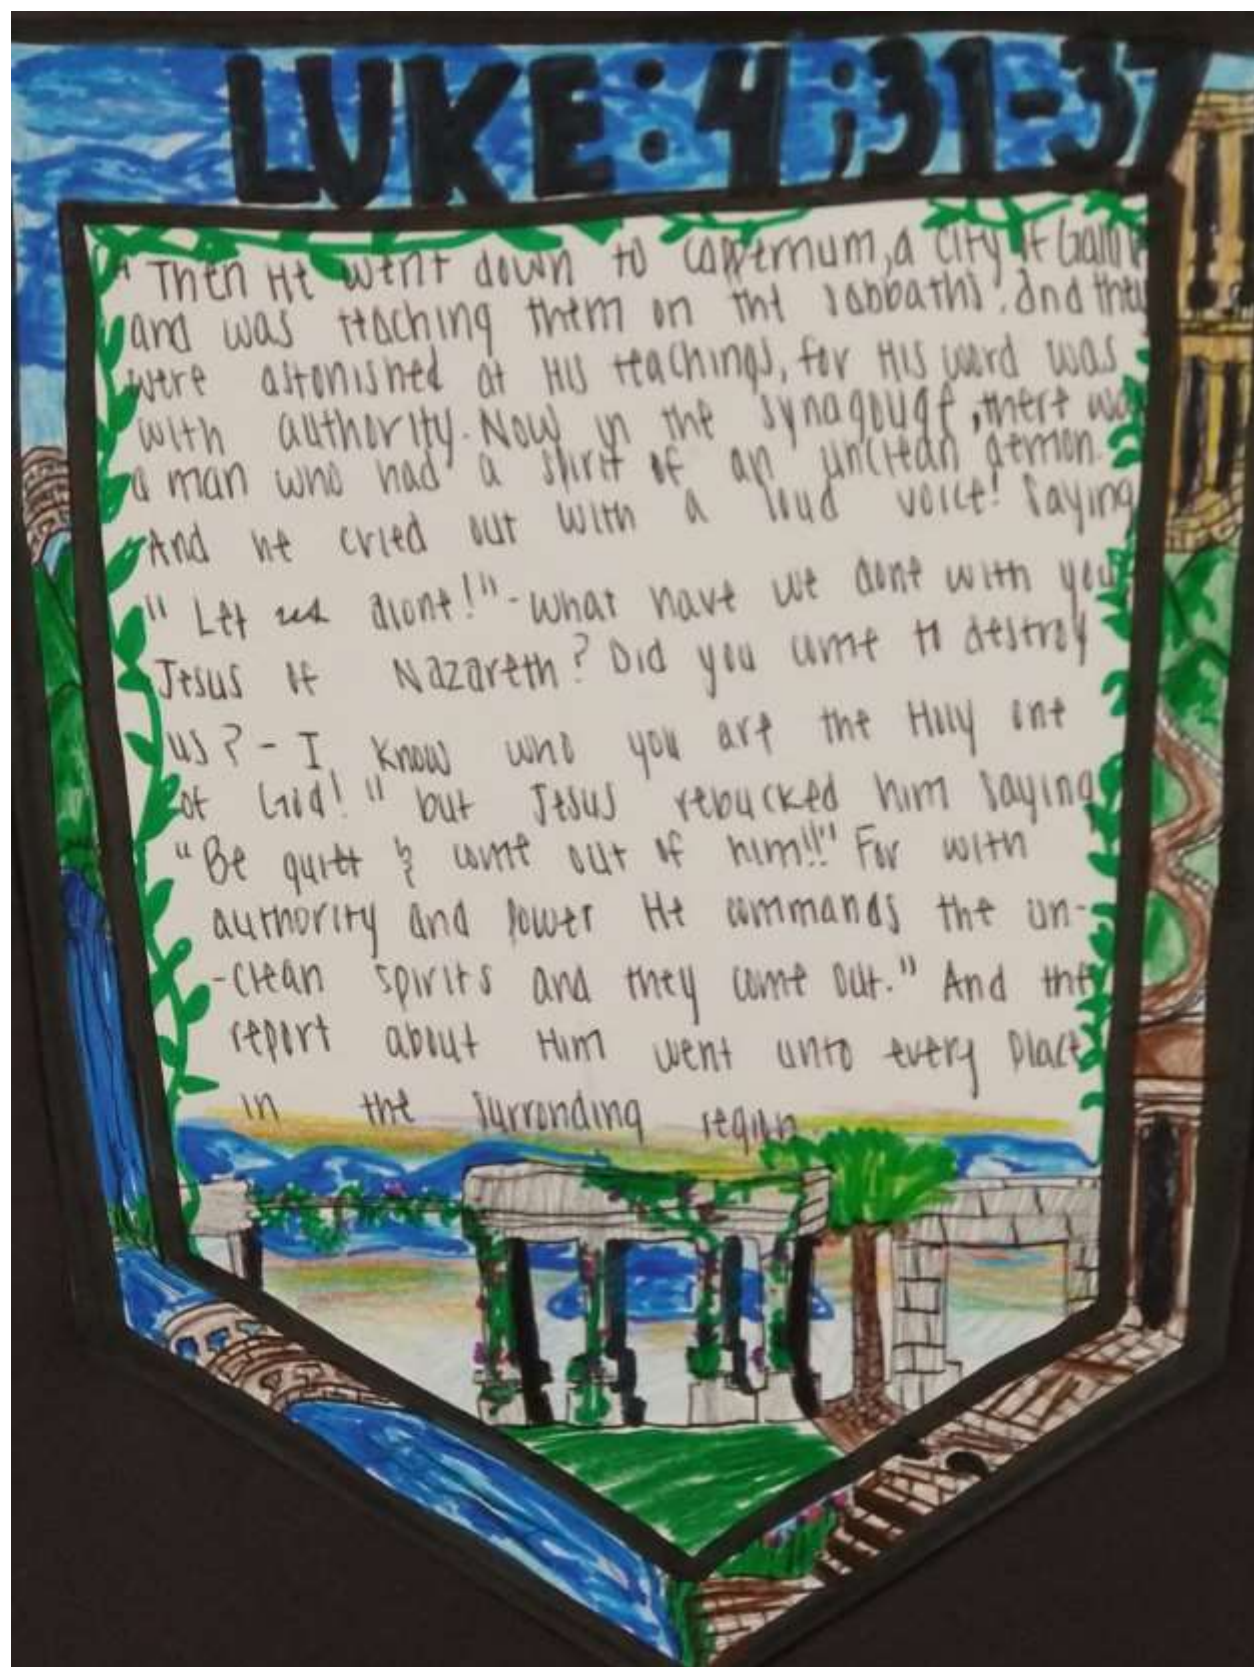 LUKE:4;31-37
"Then He went down to Coppernum, a city of
and was teaching them on the sabbaths. and they
were astonished at His teachings, for His word was
with authority. Now in the synagouge, there was
a man who had a spirit of an unclean demon.
And he cried out with a loud voice! Saying
"Let us alone!"-what have we done with you
Jesus of Nazareth? Did you come to destroy
us?-I know who you are the Holy one
of God!" but Jesus rebucked him saying
"Be quiet & come out of him!!" For with
authority and power He commands the un-
-clean spirits and they come out." And the
report about Him went unto every place
in the surronding region